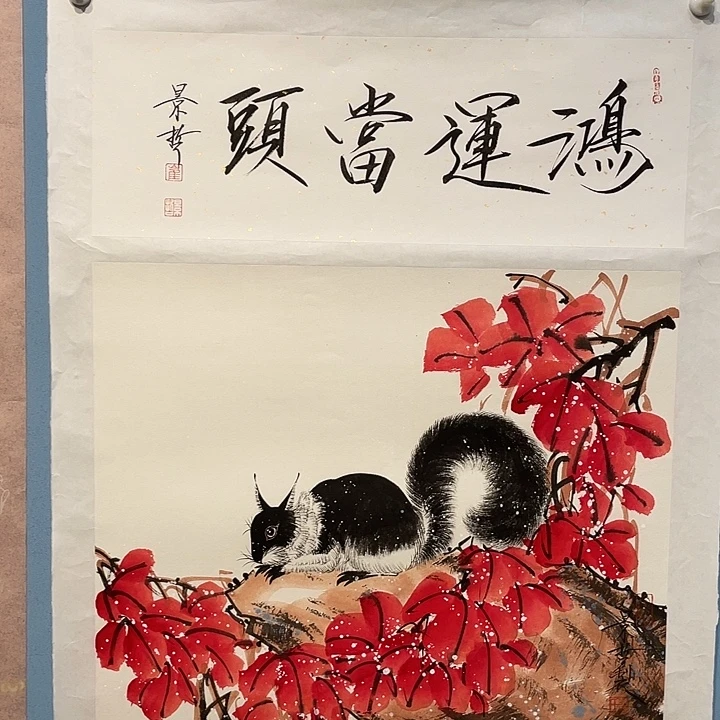 鴻運當頭
景哲